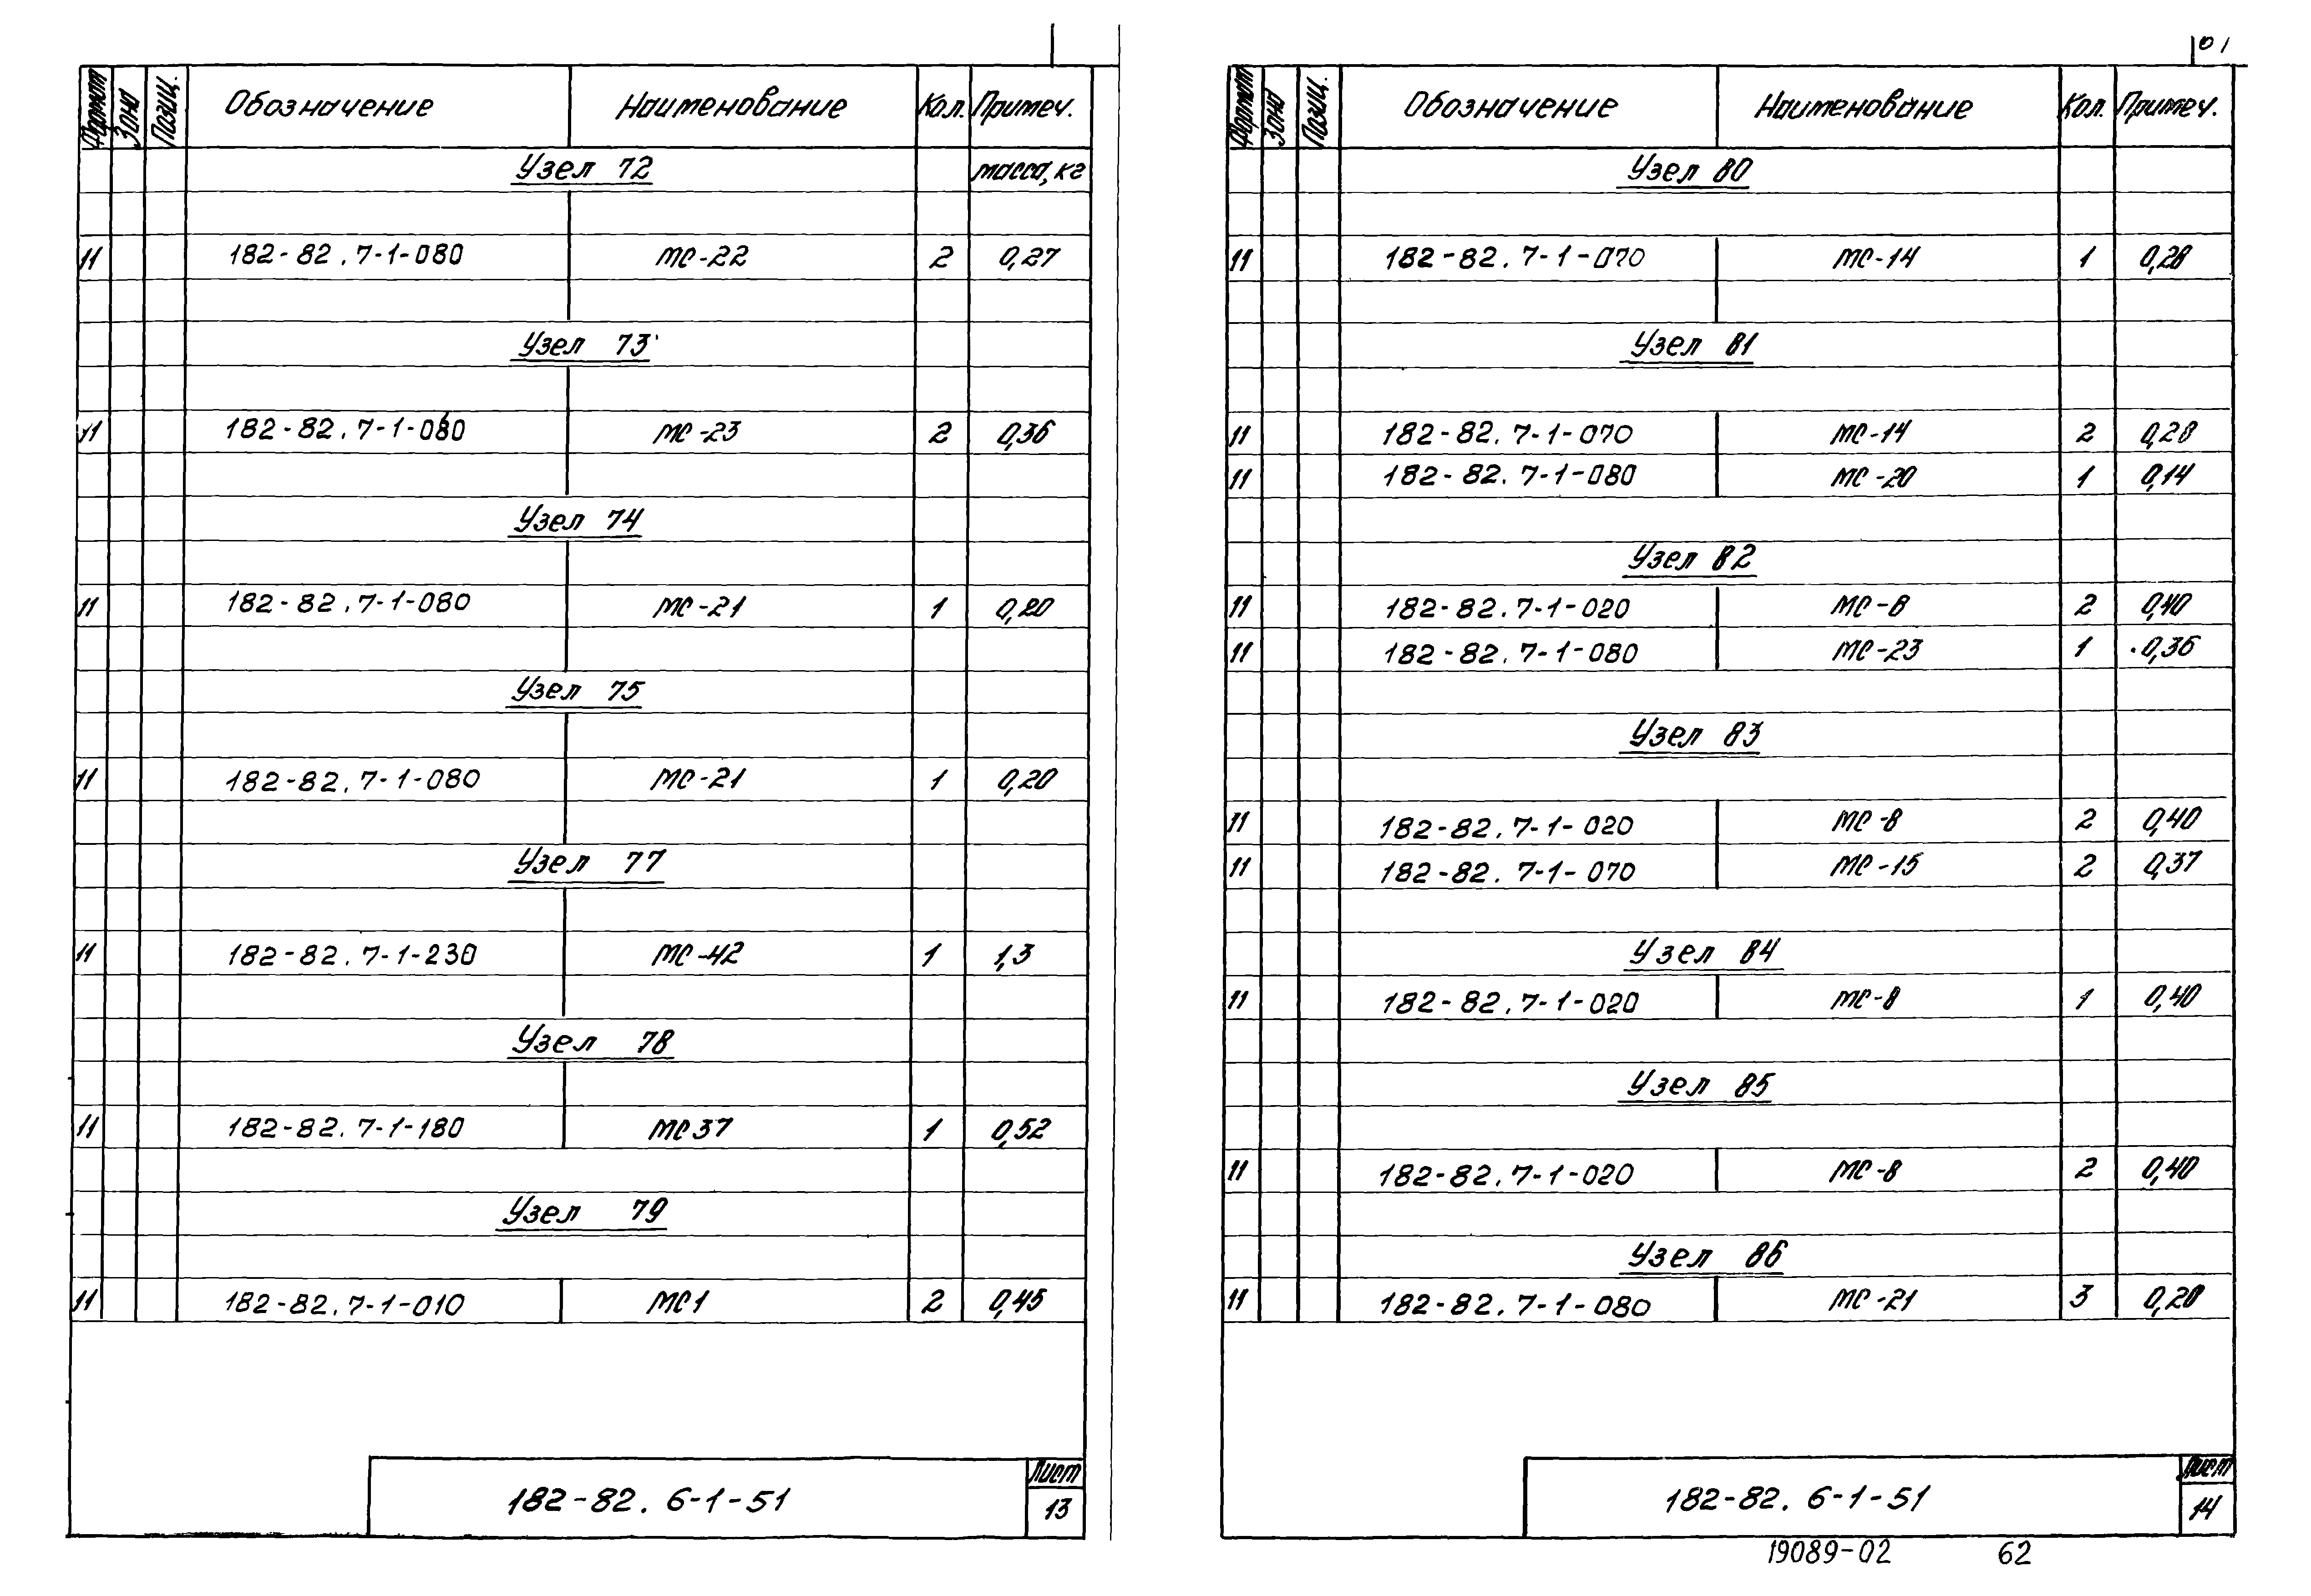 Формат Зона Позиц. Обозначение Наименование Кол. Примеч.
Узел 72 масса, кг
11 182-82.7-1-080 МС-22 2 0,27
Узел 73
11 182-82.7-1-080 МС-23 2 0,36
Узел 74
11 182-82.7-1-080 МС-21 1 0,20
Узел 75
11 182-82.7-1-080 МС-21 1 0,20
Узел 77
11 182-82.7-1-230 МС-42 1 1,3
Узел 78
11 182-82.7-1-180 МС37 1 0,52
Узел 79
11 182-82.7-1-010 МС1 2 0,45
182-82. 6-1-51
Лист
13
Формат Зона Позиц. Обозначение Наименование Кол. Примеч.
Узел 80
11 182-82.7-1-070 МС-14 1 0,28
Узел 81
11 182-82.7-1-070 МС-14 2 0,28
11 182-82.7-1-080 МС-20 1 0,14
Узел 82
11 182-82.7-1-020 МС-8 2 0,40
11 182-82.7-1-080 МС-23 1 0,36
Узел 83
11 182-82.7-1-020 МС-8 2 0,40
11 182-82.7-1-070 МС-15 2 0,37
Узел 84
11 182-82.7-1-020 МС-8 1 0,40
Узел 85
11 182-82.7-1-020 МС-8 2 0,40
Узел 86
11 182-82.7-1-080 МС-21 3 0,20
182-82. 6-1-51
Лист
14
19089-02 62